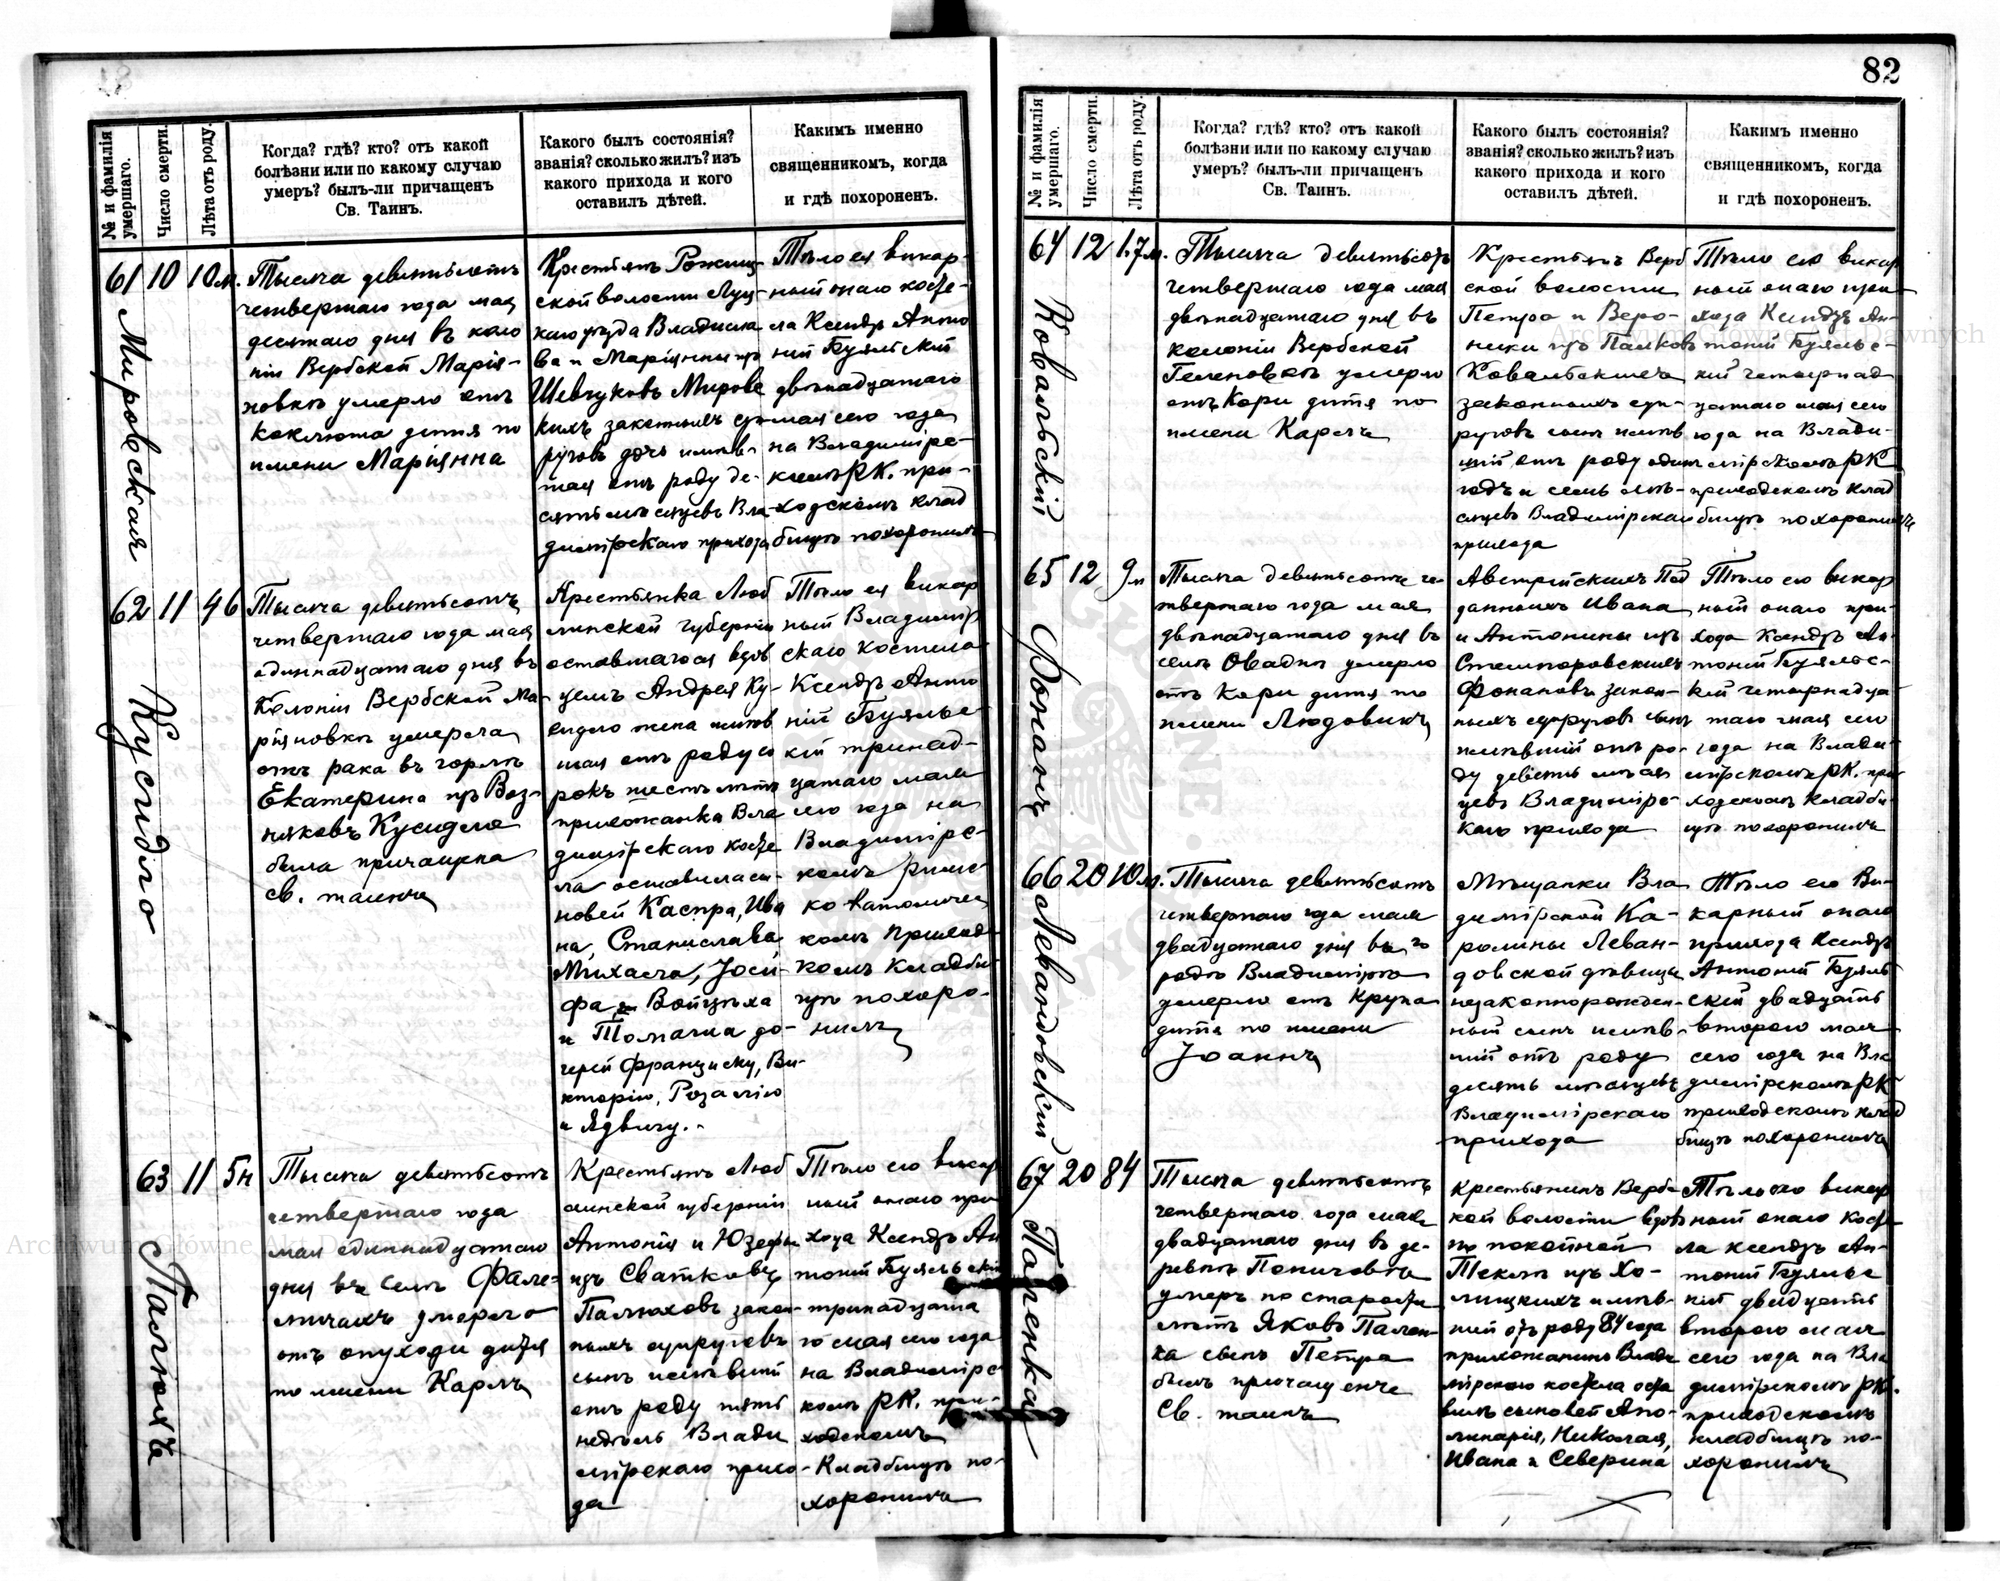 82
№ и фамилія умершаго.
Число смерти.
Лѣта отъ роду.
Когда? гдѣ? кто? отъ какой
болѣзни или по какому случаю
умеръ? былъ-ли причащенъ
Св. Таинъ.
Какого былъ состоянія?
званія? сколько жилъ? изъ
какого прихода и кого
оставилъ дѣтей.
Какимъ именно
священникомъ, когда
и гдѣ похороненъ.
61 10 10 м.
Мировская
Тысяча девятьсотъ
четвертаго года мая
десятаго дня въ коло
ніи Вербской Марія-
новкѣ умерло отъ
коклюша дитя по
имени Маріянна
Крестьянъ Рожищ-
ской волости Луц-
каго уѣзда Владисла
ва и Маріянны изъ
Шевчуковъ Мировс
кихъ законныхъ суп
руговъ дочь имѣв-
шая отъ роду де-
сять мѣсяцевъ Вла-
димірскаго прихода
Тѣло ея викар-
ный онаго косте-
ла Ксендзъ Анто
ній Буяльскій
двѣнадцатаго
мая сего года
на Владимірс-
комъ РК. при-
ходскомъ клад
бищѣ похоронилъ
62 11 46
Кусидло
Тысяча девятьсотъ
четвертаго года мая
одиннадцатаго дня въ
Колоніи Вербской Ма-
ріяновкѣ умерла
отъ рака въ горлѣ
Екатерина изъ Воз-
няковъ Кусидло
была причащена
св. таинъ
Крестьянка Люб
линской губерніи
оставшагося вдов
цемъ Андрея Ку-
сидло жена имѣв
шая отъ роду со
рокъ шесть лѣтъ
прихожанка Вла
димірскаго косте
ла оставила сы-
новей Каспра, Ива
на, Станислава
Михаила, Іоси-
фа, Войцѣха
и Томаша до-
черей Франциску, Ви-
кторію, Розалію
и Ядвигу.
Тѣло ея викар
ный Владимір
скаго костела
Ксендзъ Анто
ній Буяльс-
кій тринад-
цатаго мая
сего года на
Владимірс-
комъ римс
ко католичес
комъ приходс
комъ кладби-
щѣ похоро-
нилъ
63 11 5 н
Палюхъ
Тысяча девятьсотъ
четвертаго года
мая одиннадцатаго
дня въ селѣ Фале-
мичахъ умерло
отъ опухоли дитя
по имени Карлъ
Крестьянъ Люб
линской губерніи
Антонія и Юзефы
изъ Сватковъ
Палюховъ закон-
ныхъ супруговъ
сынъ имѣвшій
отъ роду пять
недѣль Влади
мірскаго прихо-
да
Тѣло его викар
ный онаго при
хода Ксендзъ Ан
тоній Буяльскій
тринадцата
го мая сего года
на Владимірс
комъ РК. при-
ходскомъ
Кладбищѣ по-
хоронилъ
№ и фамилія умершаго.
Число смерти.
Лѣта отъ роду.
Когда? гдѣ? кто? отъ какой
болѣзни или по какому случаю
умеръ? былъ-ли причащенъ
Св. Таинъ.
Какого былъ состоянія?
званія? сколько жилъ? изъ
какого прихода и кого
оставилъ дѣтей.
Какимъ именно
священникомъ, когда
и гдѣ похороненъ.
64 12 1.7 м.
Ковальскій
Тысяча девятьсотъ
четвертаго года мая
двѣнадцатаго дня въ
колоніи Вербской
Геленовкѣ умерло
отъ Кори дитя по
имени Карлъ
Крестьянъ Верб
ской волости
Петра и Веро-
ники изъ Палковъ
Ковальскихъ
законныхъ суп-
руговъ сынъ имѣв
шій отъ роду одинъ
годъ и семь мѣ-
сяцевъ Владимірскаго
прихода
Тѣло его викар
ный онаго при-
хода Ксендзъ Ан-
тоній Буяльс-
кій четырнад
цатаго мая сего
года на Влади-
мірскомъ РК
приходскомъ клад
бищѣ похоронилъ
65 12 9 м
Фонанъ
Тысяча девятьсотъ че-
твертаго года мая
двѣнадцатаго дня въ
селѣ Овадно умерло
отъ Кори дитя по
имени Людовикъ
Австрійскихъ Под
данныхъ Ивана
и Антонины изъ
Фонановъ закон-
ныхъ супруговъ сынъ
имѣвшій отъ ро-
ду девять мѣся
цевъ Владимірс-
каго прихода
Тѣло его викар
ный онаго при-
хода Ксендзъ Ан-
тоній Буяльс-
кій четырнадца-
таго мая сего
года на Влади-
мірскомъ РК. при-
ходскомъ кладби-
щѣ похоронилъ
66 20 10 м.
Левандовскій
Тысяча девятьсотъ
четвертаго года мая
двадцатаго дня въ го
родѣ Владимірѣ
умерло отъ Крупа
дитя по имени
Іоаннъ
Мѣщанки Вла
димірской Ка-
ролины Леван-
довской дѣвицы
незаконнорожден-
ный сынъ имѣв-
шій отъ роду
десять мѣсяцевъ
Владимірскаго
прихода
Тѣло его Ви-
карный онаго
прихода Ксендзъ
Антоній Буяль
скій двадцать
второго мая
сего года на Вла
димірскомъ РК
приходскомъ клад
бищѣ похоронилъ
67 20 84
Паленка
Тысяча девятьсотъ
четвертаго года мая
двадцатаго дня въ де-
ревнѣ Поничовѣ
умеръ по старости
лѣтъ Яковъ Пален-
ка сынъ Петра
былъ причащенъ
Св. таинъ
Крестьянинъ Вербс
кой волости вдовъ
по покойной
Теклѣ изъ Хо-
лицкихъ имѣв-
шій отъ роду 84 года
прихожанинъ Влади
мірскаго костела оста
вилъ сыновей Апо-
линарія, Николая,
Ивана и Северина
Тѣло его викар
ный онаго косте
ла ксендзъ Ан-
тоній Буяльс
кій двадцать
второго мая
сего года на Вла
димірскомъ РК.
приходскомъ
кладбищѣ по-
хоронилъ
Archiwum Główne Akt Dawnych
Archiwum Główne Akt Dawnych